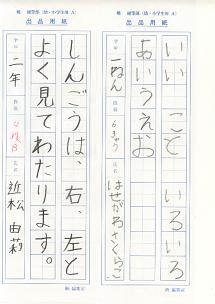 硬筆部(幼・小学生用 A)
出品用紙
いい こと いろいろ
あいうえお
一ねん
6きゅう
はせがわさくらこ
硬筆部(幼・小学生用 A)
出品用紙
しんごうは、右、左と
よく見てわたります。
二年
4段
近松 由莉